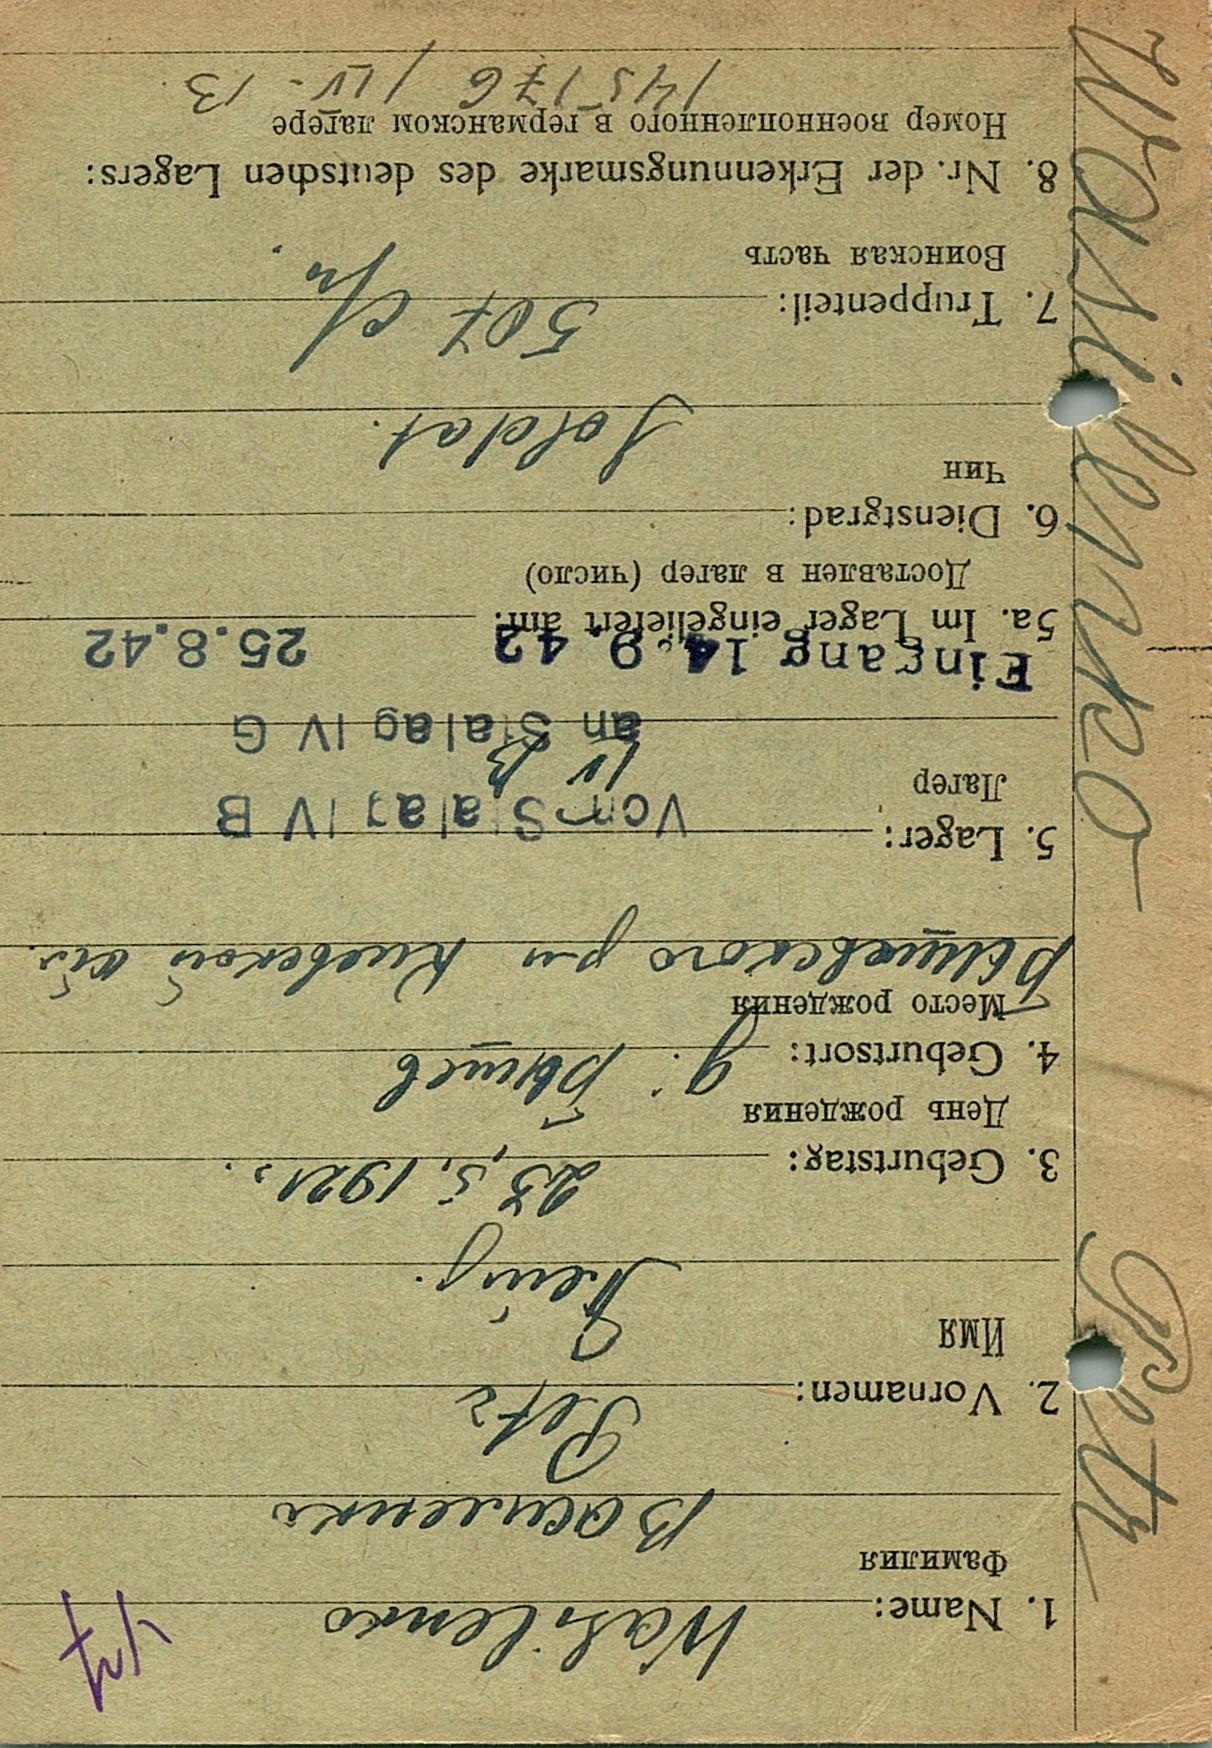 1. Name:
Wasilenko
Фамилия
Василенко
2. Vornamen:
Petr
Имя
3. Geburtstag:
23.5.1921.
День рождения
4. Geburtsort:
д. Бышев
Место рождения
Бышевского р-н Киевской обл.
5. Lager:
Vom Stalag IV B
Лагер
IV B
an Stalag IV G
Eingang 14.9.42
25.8.42
5a. Im Lager eingeliefert am:
Доставлен в лагер (число)
6. Dienstgrad:
Чин
Soldat.
7. Truppenteil:
507 с/п.
Воинская часть
8. Nr. der Erkennungsmarke des deutschen Lagers:
Номер военнопленного в германском лагере
145176 / IV - B
Wassilenko Petr